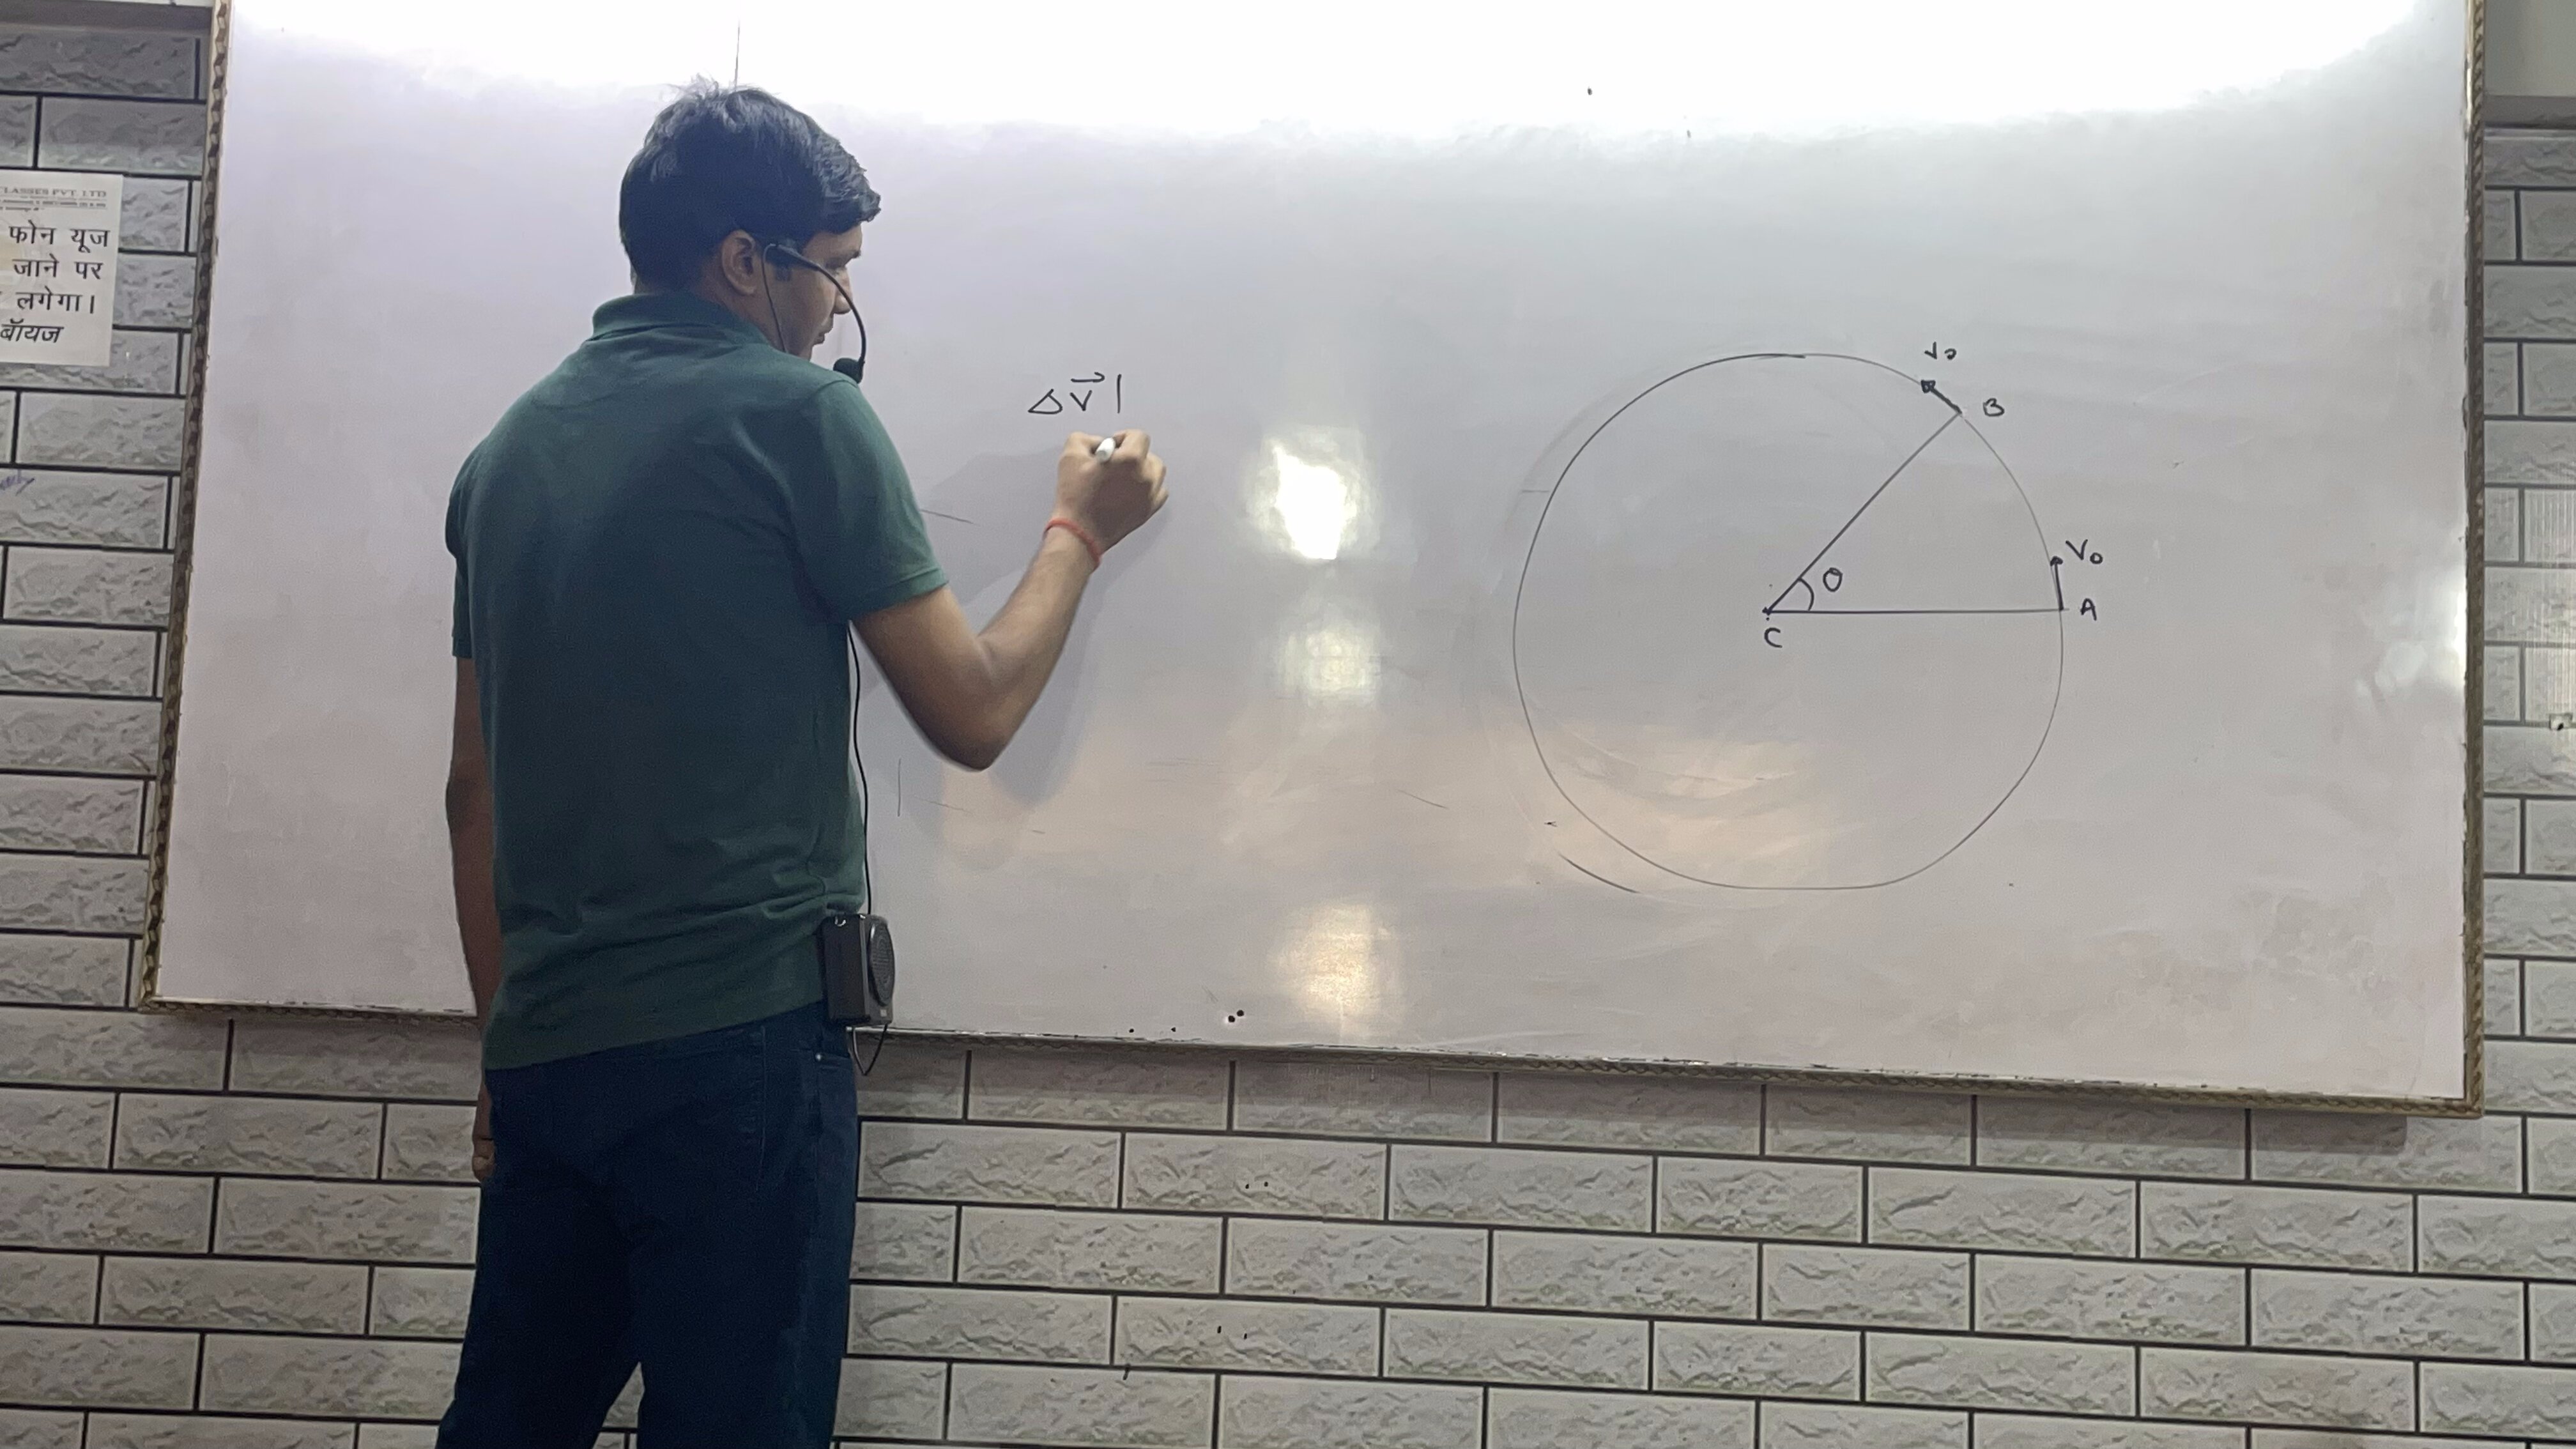 CLASSES PVT. LTD
फोन यूज
जाने पर
लगेगा।
बॉयज
Δv⃗ |
V₀
B
V₀
A
θ
C